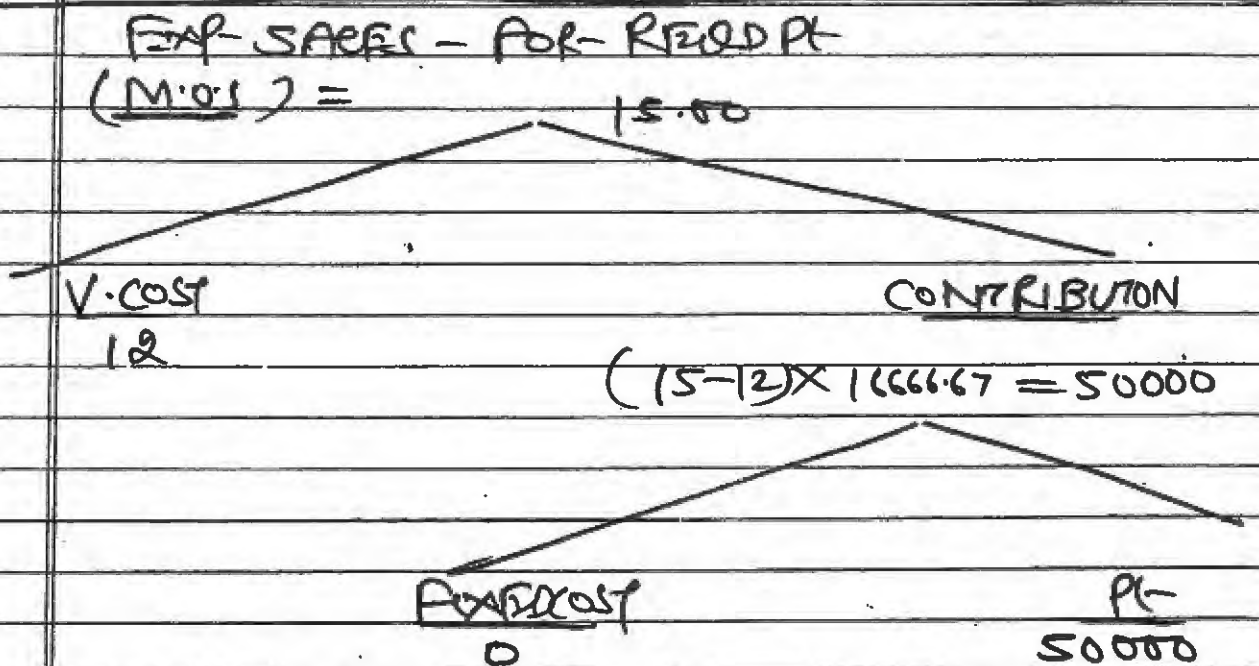 EXP SALES - FOR REQD Pt
(M.O.S) =
15.00
V.COST
CONTRIBUTON
12
(15-12) X 16666.67 = 50000
FIXEDCOST
Pt
0
50000